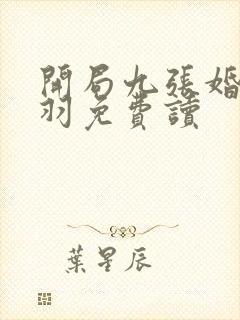 開局九張婚
羽免費讀
葉星辰